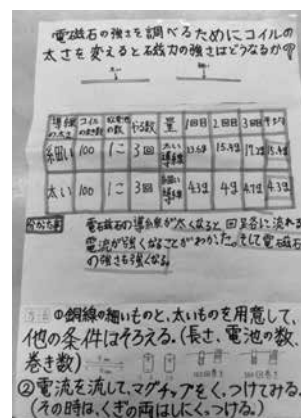 電磁石の強さを調べるためにコイルの
太さを変えると磁力の強さはどうなるか
導線の太さ コイルの巻き数 乾電池の数 やる数 量 1回目 2回目 3回目 平均
細い 100 1こ 3回 太い導線 15.4g 15.4g
太い 100 1こ 3回 細い導線 4.3g 4g 4.7g 4.3g
電磁石の導線が太くなると、回路に流れる
電流が強くなることがわかった。そして電磁石
の強さも強くなる。
方法 ①銅線の細いものと、太いものを用意して、
他の条件はそろえる。(長さ、電池の数、
巻き数)
②電流を流して、マグチップをくっつけてみる。
(その時は、くぎの両はしにくっつける。)